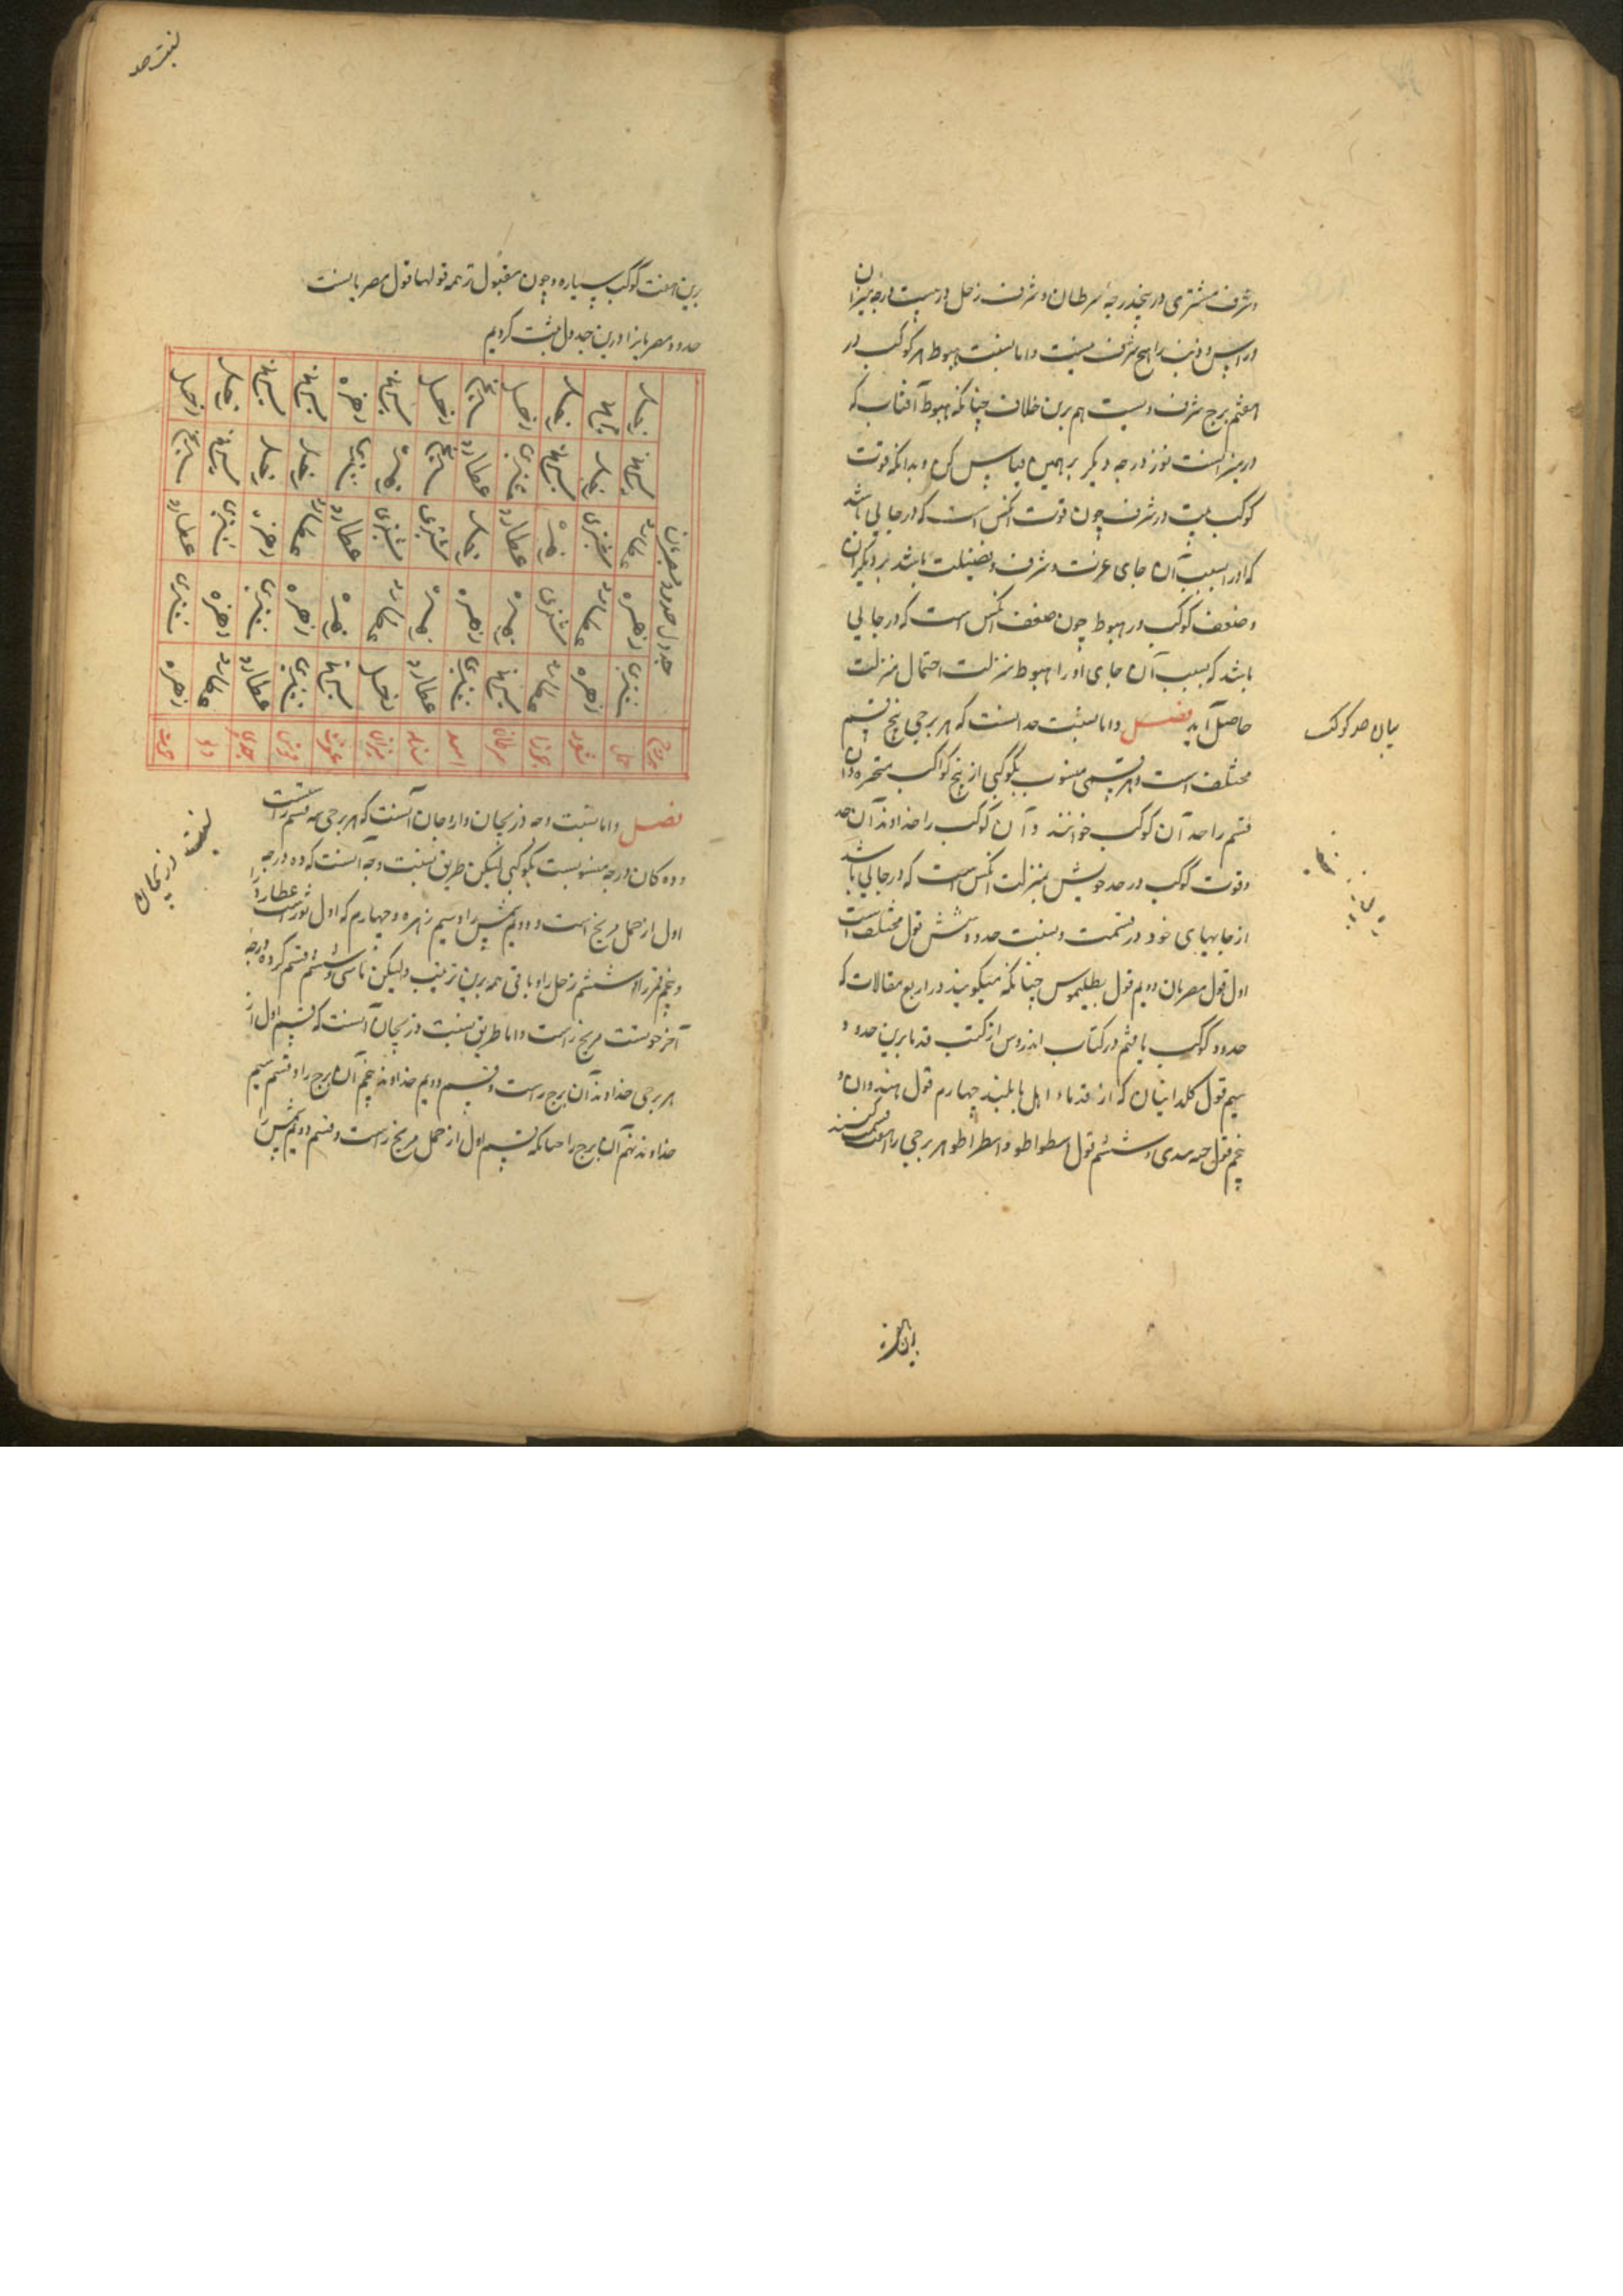 وشرف مشتری در پنجدرجه سرطان وشرف زحل در بیست درجه میزان
وراس وذنب را هیچ شرف نیست واما نسبت هبوط هر کوکب در
هفتم برج شرف ویست هم برین خلاف چنانکه هبوط آفتاب که
در میزانست نوزدرجه دیگر برهمین قیاس کن وبدانکه قوت
کوکب در شرف چون قوت آنکس است که در جایی باشد
که اورا بسبب آن جای عزت وشرف وفضیلت باشد بر دیگران
وضعف کوکب در هبوط چون ضعف آنکس است که در جایی
باشد که بسبب آن جای اورا هبوط منزلت احتمال منزلت
حاصل آید فصل واما نسبت حد آنست که هر برجی پنج قسم
مختلف است وهر قسمی منسوب بکوکبی از پنج کواکب متحیره وآن
قسم را حد آن کوکب خوانند وآن کوکب را خداوند آن حد
وقوت کوکب در حد خویش بمنزلت آنکس است که در جایی باشد
از جایهای خود در قسمت ونسبت حدود شش قول مختلف است
اول قول مصریان دویم قول بطلیموس چنانکه میگویند در اربع مقالات که
حدود کوکب یافتم در کتاب اندروس از کتب قدما برین حدود
سیم قول کلدانیان که از قدماء اهل بابلیند چهارم قول هندوان و
پنجم قول وششم قول اسطراطو هر برجی را هفت قسمت کنند
بیان حد کوکب
برین هفت
نسبت حد
برین هفت کوکب سیاره وچون مقبول ترهمه قولها قول مصریانست
حدود مصریانرا درین جدول ثبت کردیم
جدول حدود مصریان
بروج حمل ثور جوزا سرطان اسد سنبله میزان عقرب قوس جدی دلو حوت
مشتری زهره عطارد مریخ مشتری عطارد زحل مریخ مشتری عطارد عطارد زهره
زهره عطارد مشتری زهره زهره زهره عطارد زهره زهره مشتری زهره مشتری
عطارد مشتری زهره عطارد زحل مشتری مشتری عطارد عطارد زهره مشتری عطارد
مریخ زحل مریخ مشتری عطارد مریخ زهره مشتری زحل زحل مریخ مریخ
زحل مریخ زحل زحل مریخ زحل مریخ زهره مریخ مریخ زحل زحل
فصل واما نسبت وجه ودریجان واراجان آنست که هر برجی سه قسم راست
وده کان درجه منسوبست بکوکبی لیکن طریق نسبت وجه آنست که ده درجه
اول از حمل مریخ است ودویم شمس را وسیم زهره وچهارم که اول ثور است عطارد را
وپنجم قمر را وششم زحل را وباقی همه برین ترتیب ولیکن تا سی وششم قسم که ده درجه
آخر حوتست مریخ راست واما طریق نسبت دریجان آنست که قسم اول از
هر برجی خداوند آن برج راست وقسم دویم خداوند پنجم آن برج را وقسم سیم
خداوند نهم آن برج را چنانکه قسم اول از حمل مریخ راست وقسم دویم شمس را
نسبت دریجان